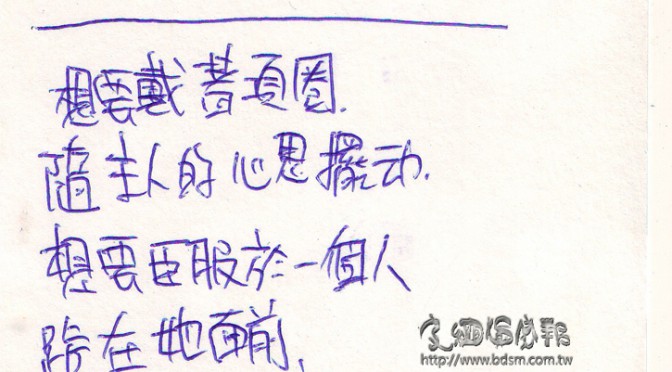 想要戴著項圈.
隨主人的心思擺动.
想要臣服於一個人
跪在她面前.
http://www.bdsm.com.tw